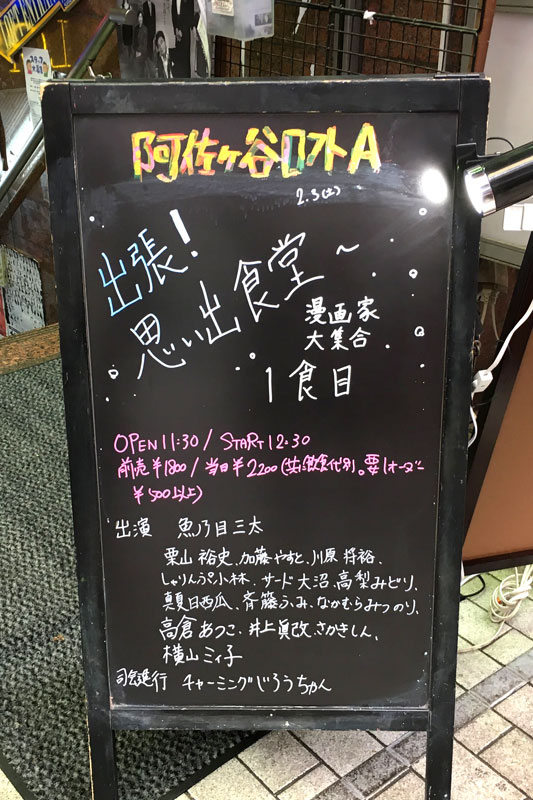 阿佐ヶ谷ロフトA
2.3(土)
出張!
思い出食堂〜
漫画家
大集合
1食目
OPEN 11:30 / START 12:30
前売¥1800 / 当日¥2200(共に飲食代別。要1オーダー
¥500以上)
出演 魚乃目三太
栗山裕史、加藤やすと、川原将裕、
しゃりんぷ小林、サード大沼、高梨みどり、
真夏日西瓜、斉藤ふみ、なかむらみつのり、
高倉あつこ、井上眞改、さかきしん、
横山ミィ子
司会進行 チャーミングじろうちゃん